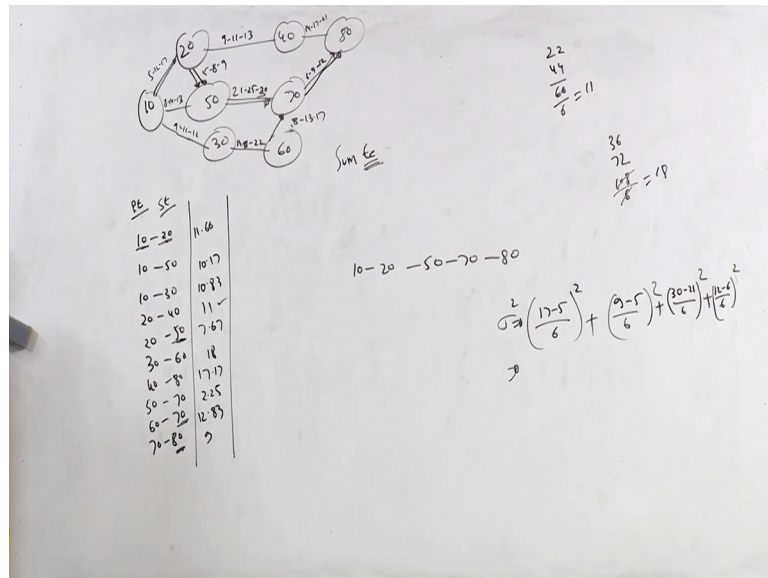 20
9-11-13
40
14-17-21
80
5-12-17
5-8-9
10
50
21-25-30
70
6-9-12
8-13-17
30
60
Sum te
22
44
66/6 = 11
36
72
108/6 = 18
Pt St
10-20 11.66
10-50 10.17
10-30 10.83
20-40 11 ✓
20-50 7.67
30-60 18
40-80 17.17
50-70 2.25
60-70 12.83
70-80 9
10-20-50-70-80
σ² ⇒ (17-5/6)² + (9-5/6)² + (30-21/6)² + (12-6/6)²
⇒